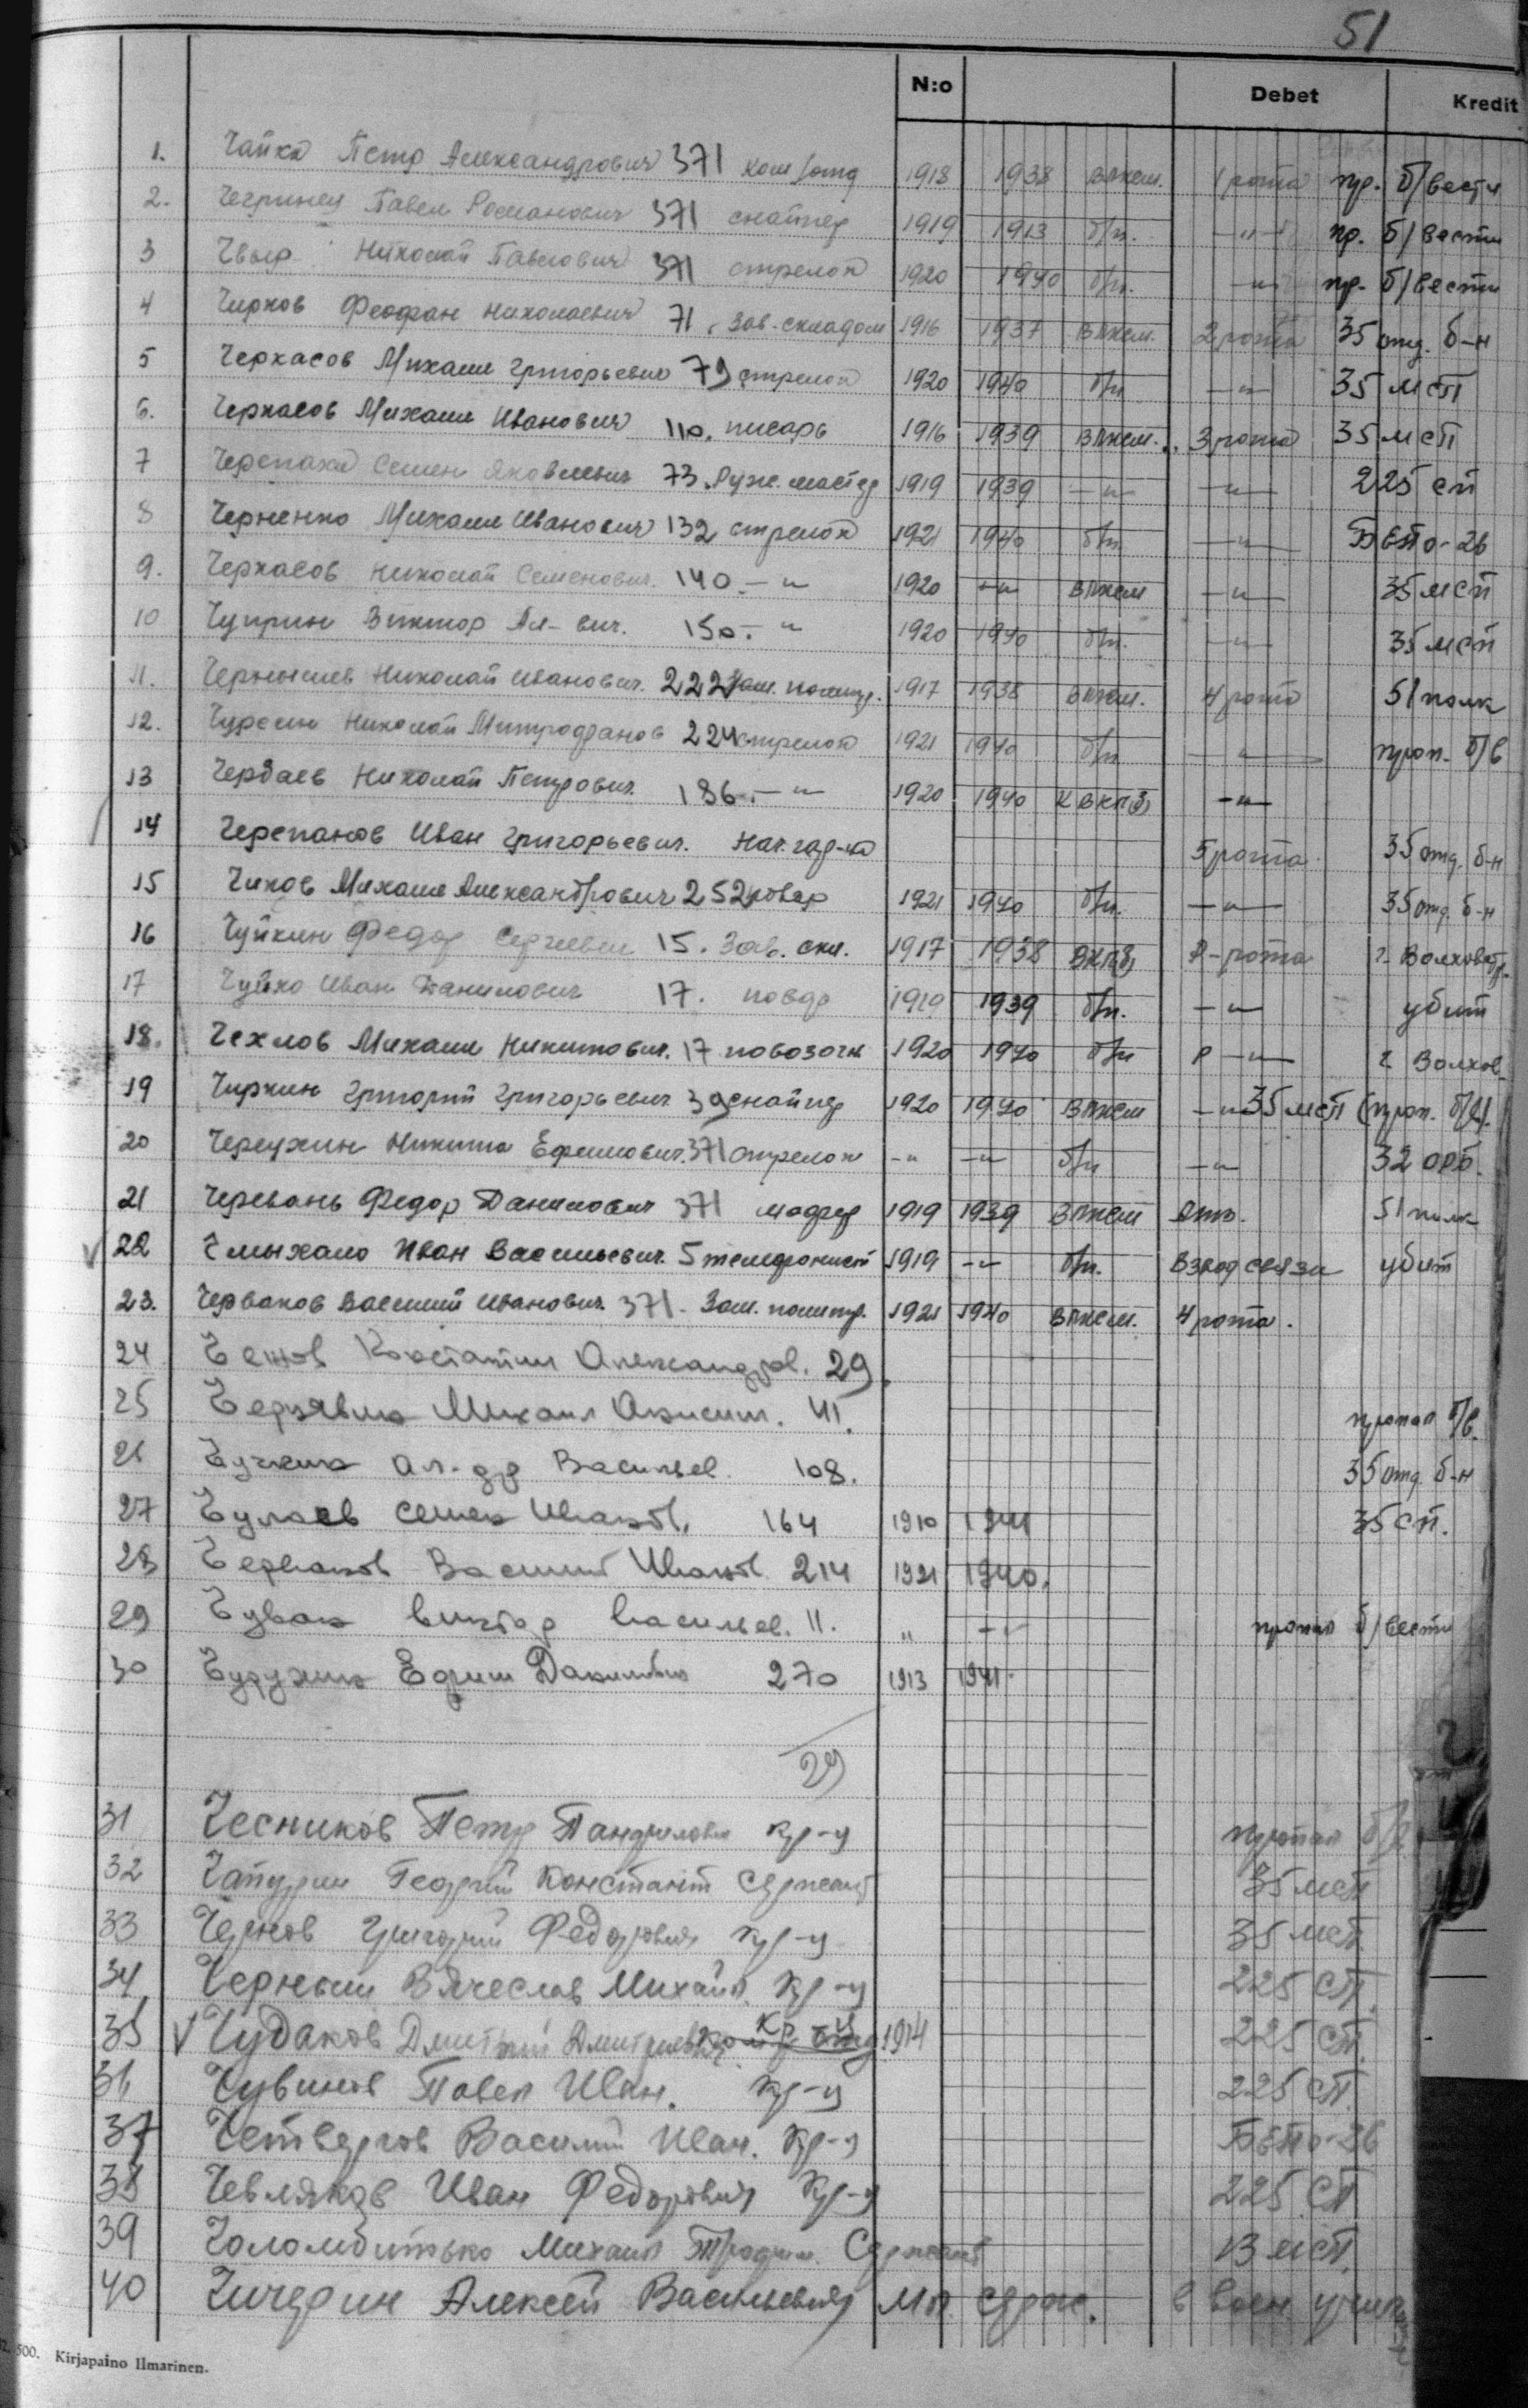 51
N:o Debet Kredit
1. Чайка Петр Александрович 371 ком/отд 1918 1938 влксм. 1 рота пр. б/вести
2. Чегринец Павел Романович 371 снайпер 1919 1913 б/п. —"— пр. б/вести
3 Чвыр Николай Павлович 371 стрелок 1920 1940 б/п. —"— пр. б/вести
4 Чирков Феофан Николаевич 71, Зав. складом 1916 1937 влксм. 2 рота 35 отд. б-н
5 Черкасов Михаил Григорьевич 79 стрелок 1920 1940 б/п —"— 35 мсп
6. Черкасов Михаил Иванович 110. писарь 1916 1939 влксм. 3 рота 35 мсп
7 Черепаха Семен Яковлевич 73. Руж. мастер 1919 1939 —"— —"— 225 сп
8 Черненко Михаил Иванович 132 стрелок 1921 1940 б/п —"— 26
9. Черкасов Николай Семенович. 140 —"— 1920 —"— влксм —"— 35 мсп
10 Чуприн Виктор Ал-вич. 150. —"— 1920 1940 б/п. —"— 35 мсп
11. Чернышев Николай Иванович. 222 Зам. политр. 1917 1938 влксм. 4 рота 51 полк
12. Николай Митрофанов 224 стрелок 1921 1940 б/п —"— проп. б/в
13 Николай Петрович. 186. —"— 1920 1940 КВКП(б) —"—
14 Черепанов Иван Григорьевич. 5 рота 35 отд. б-н
15 Чиков Михаил Александрович 252 повар 1921 1940 б/п. —"— 35 отд. б-н
16 Чуйкин Федор Сергеевич 15. Зав. скл. 1917 1938 ВКП(б) Р-рота г. Волховстр.
17 Чуйко Иван Данилович 17. повар 1919 1939 б/п. —"— убит
18. Чехлов Михаил Никитович. 17 повозочн 1920 1940 б/п Р —"— г. Волхов
19 Чиркин Григорий Григорьевич 39 снайпер 1920 1940 влксм —"— 35 мсп (проп. б/в).
20 Никита Ефимович. 371 стрелок —"— —"— б/п —"— 32 орб.
21 Черевань Федор Данилович 371 1919 1939 влксм 51 полк
22 Чмыхало Иван Васильевич. 5 телефонист 1919 —"— б/п. Взвод связи убит
23. Черваков Василий Иванович. 371. Зам. политр. 1921 1940 влксм. 4 рота.
24 Александров. 29.
25 Михаил 41. пропал б/в.
26 Чучкин Ал-др Васильев. 108. 35 отд. б-н
27 Чулаев Семен Иванов. 164 1910 1941 35 сп.
28 Черваков Василий Иванов. 214 1921 1940.
29 Виктор Васильев. 11. " —"— пропал б/вести
30 Ефим Данилович 270 1913 1941.
29
31 Чесников Петр Панфилович кр-ц пропал б/в
32 Чапурин Георгий Констант сержант 35 мсп
33 Чернов Григорий Федорович кр-ц 35 мсп.
34 Черныш Вячеслав Михайл. кр-ц 225 СП.
35 √ Чудаков Дмитрий Дмитриевич кр-ц 1914 225 СП.
36 Чувинов Павел Иван. кр-ц 225 СП.
37 Четвергов Василий Иван. кр-ц
38 Чевляков Иван Федорович кр-ц 225 СП
39 Чоломбитько Михаил Трофим. Сержант 13 мсп.
40 Чичерин Алексей Васильевич мл. серж. в воен.
500. Kirjapaino Ilmarinen.